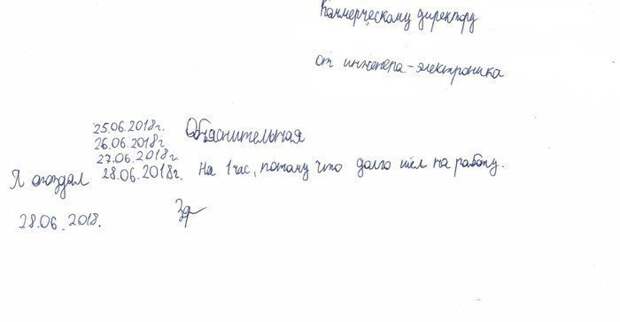 Коммерческому директору
от инженера-электроника
Объяснительная
25.06.2018г.
26.06.2018г.
27.06.2018г
Я опоздал 28.06.2018г. На 1 час, потому что долго шёл на работу.
28.06.2018.